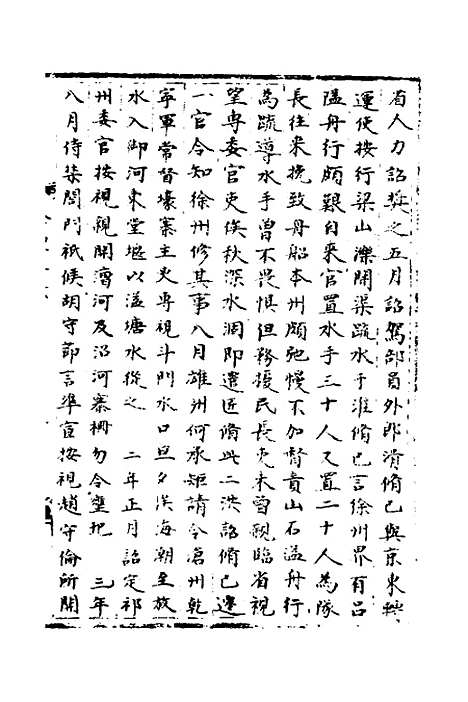 省人力詔獎之五月詔駕部員外郎滑脩己與京東轉
運使按行梁山濼開渠疏水于淮脩己言徐州界有呂
隘舟行頗艱自來官置水手三十人又置二十人為隊
長往來挽致舟船本州頗弛慢不加督責山石溢舟行
為疏導水手曾不畏惧但務擾民長吏未曾親臨省視
望専委官吏俟秋深水涸即選匠脩此二洪詔脩己選
一官令知徐州修其事八月雄州何承矩請令滄州乾
寧軍常督壕寨主吏專視斗門水口旦夕俟海朝至放
水入御河東堂堰以溢塘水從之 二年正月詔定祁
州委官按視親開濟河及沿河寨柵勿令壅圯 三年
八月侍禁閤門祇候胡守節言準宣按視趙守倫所開